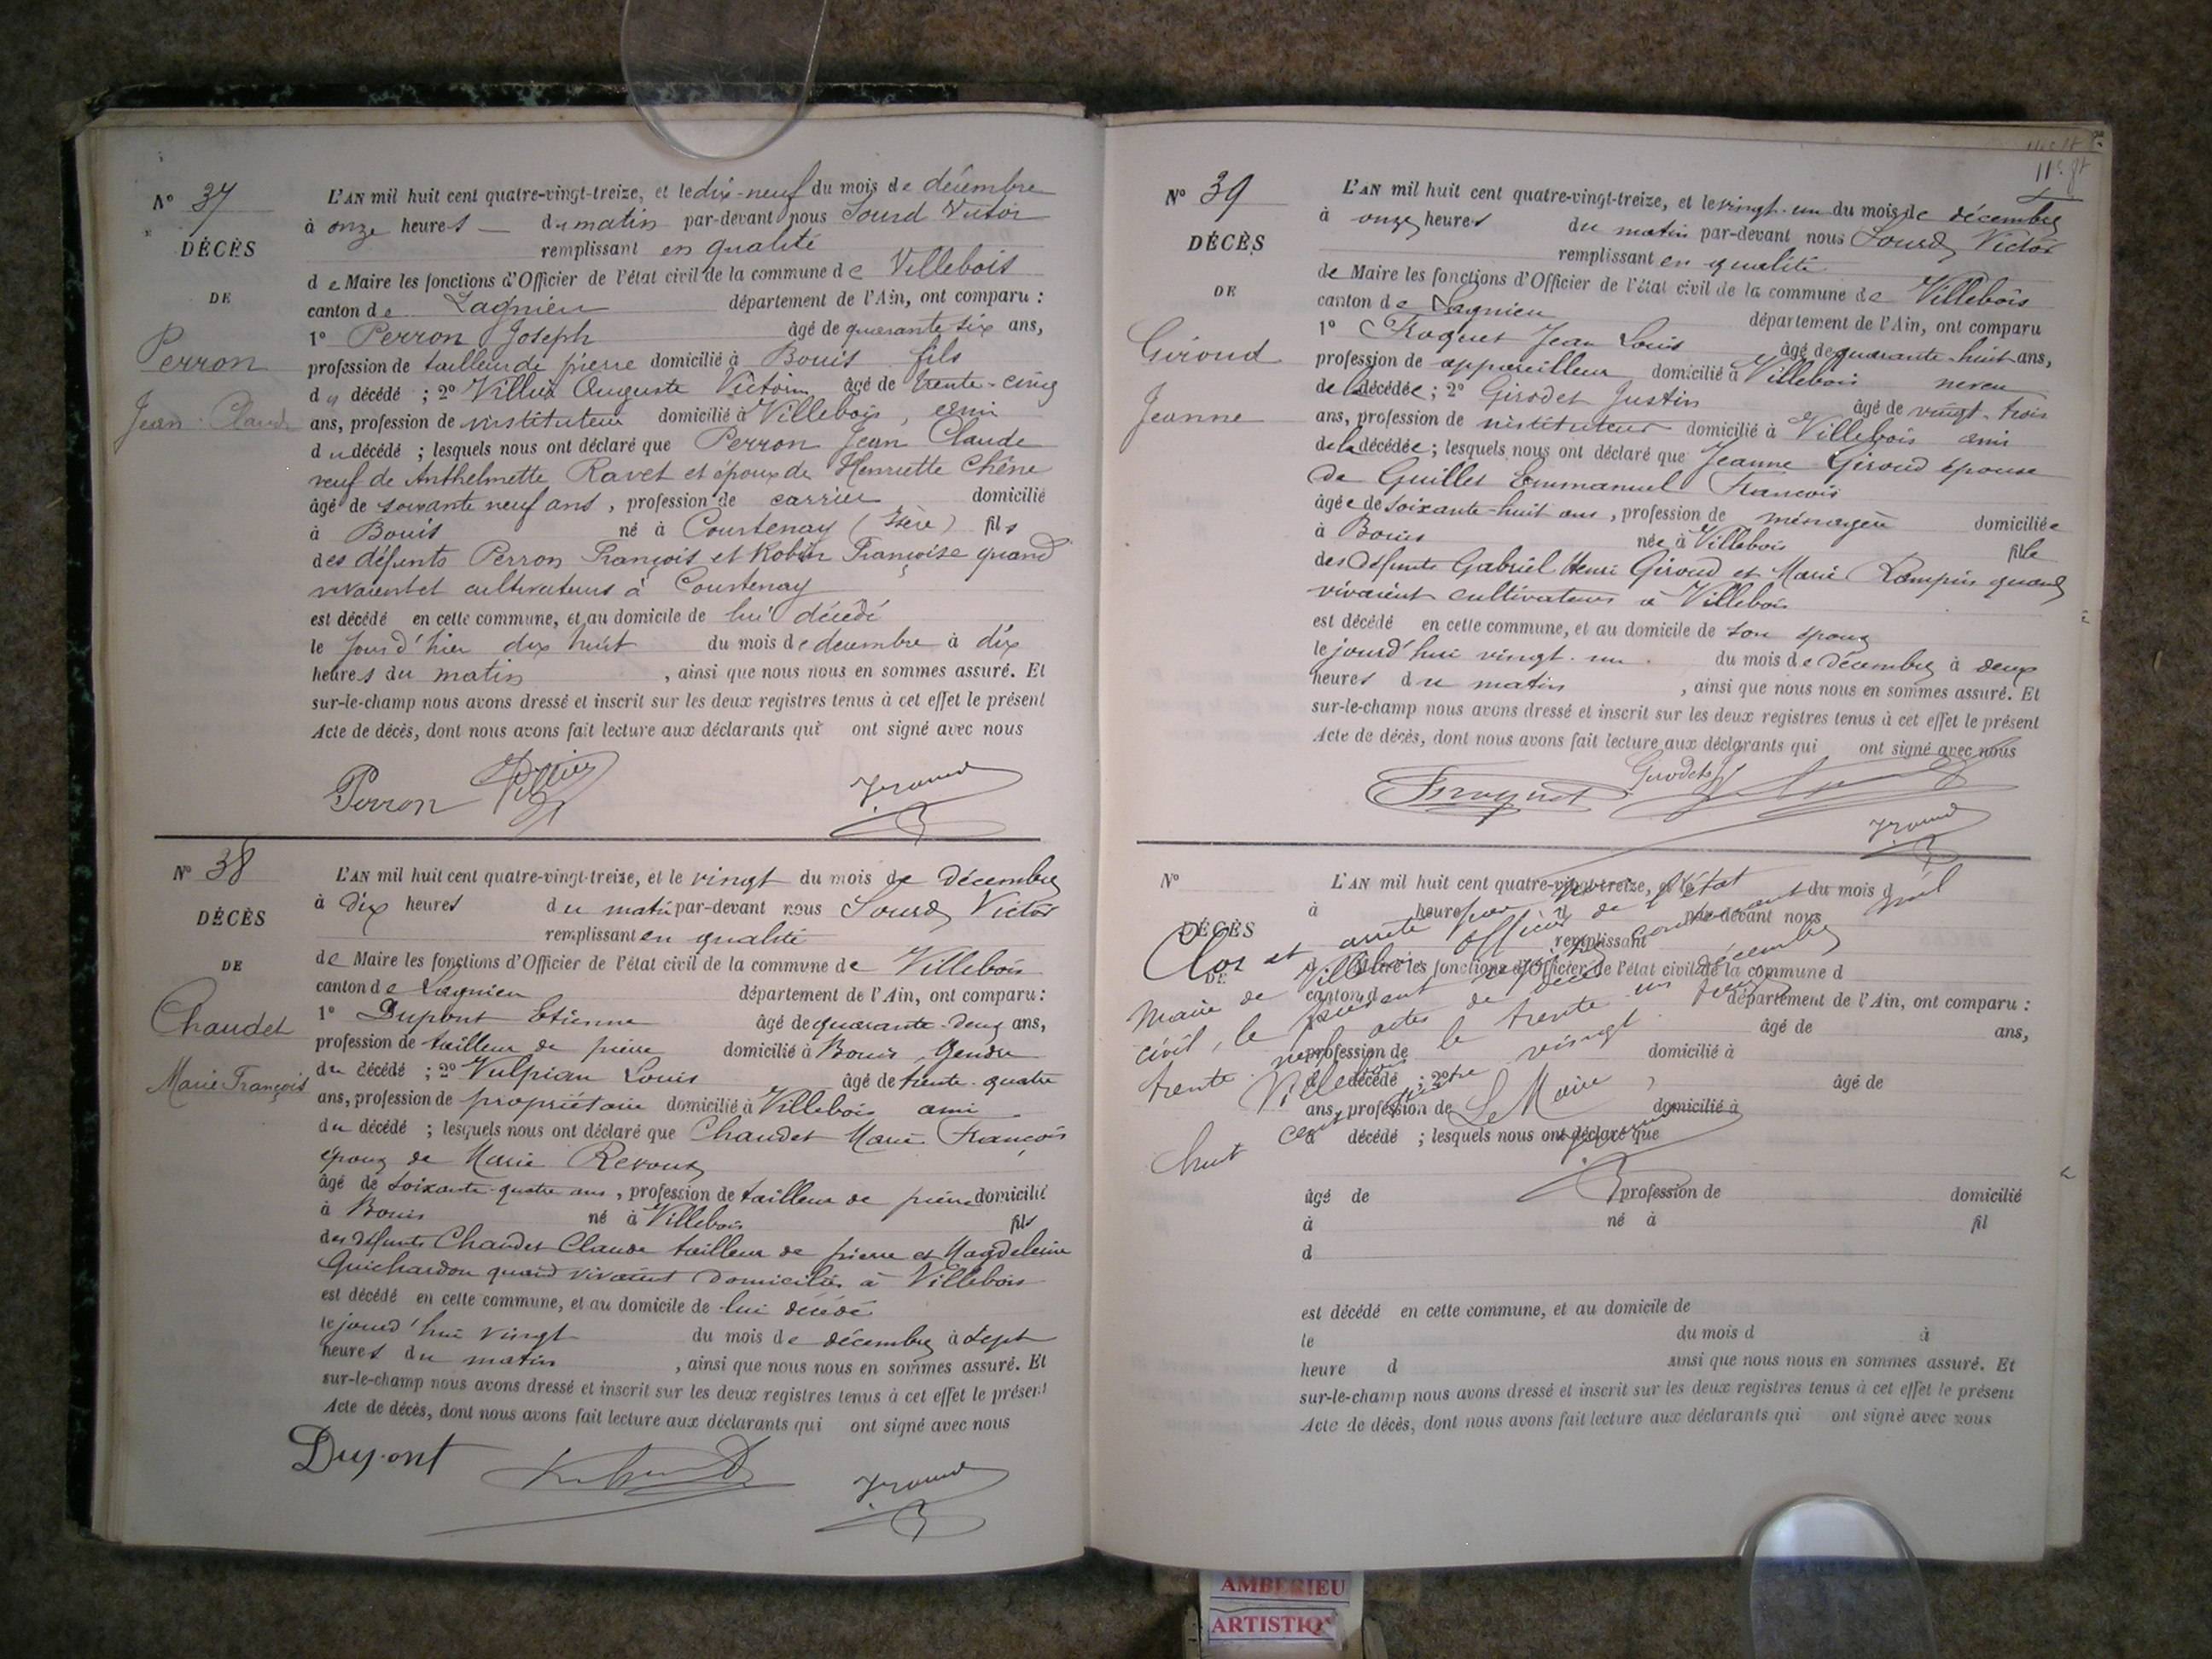 N° 37
DÉCÈS
DE
Perron
Jean-Claude
L'AN mil huit cent quatre-vingt-treize, et le dix-neuf du mois de décembre
à onze heures du matin par-devant nous Sourd Victor
remplissant en qualité
de Maire les fonctions d'Officier de l'état civil de la commune de Villebois
canton de Lagnieu département de l'Ain, ont comparu :
1° Perron Joseph âgé de quarante six ans,
profession de tailleur de pierre domicilié à Bouis fils
du décédé ; 2° Auguste Victorin âgé de trente-cinq
ans, profession de instituteur domicilié à Villebois, ami
du décédé ; lesquels nous ont déclaré que Perron Jean Claude
veuf de Anthelmette Ravet et époux de Henriette Chêne
âgé de soixante neuf ans, profession de carrier domicilié
à Bouis né à Courtenay (Isère) fils
des défunts Perron François et Robin Françoise quand
vivaient cultivateurs à Courtenay
est décédé en cette commune, et au domicile de lui décédé
le jour d'hier dix huit du mois de décembre à dix
heures du matin, ainsi que nous nous en sommes assuré. Et
sur-le-champ nous avons dressé et inscrit sur les deux registres tenus à cet effet le présent
Acte de décès, dont nous avons fait lecture aux déclarants qui ont signé avec nous
Perron
N° 38
DÉCÈS
DE
Chaudet
Marie François
L'AN mil huit cent quatre-vingt-treize, et le vingt du mois de décembre
à dix heures du matin par-devant nous Sourd Victor
remplissant en qualité
de Maire les fonctions d'Officier de l'état civil de la commune de Villebois
canton de Lagnieu département de l'Ain, ont comparu :
1° Dupont Etienne âgé de quarante-deux ans,
profession de tailleur de pierre domicilié à Bouis, gendre
du décédé ; 2° Vulpian Louis âgé de trente-quatre
ans, profession de propriétaire domicilié à Villebois ami
du décédé ; lesquels nous ont déclaré que Chaudet Marie François
époux de Marie Revoux
âgé de soixante-quatre ans, profession de tailleur de pierre domicilié
à Bouis né à Villebois fils
des défunts Chaudet Claude tailleur de pierre et Magdeleine
Guichardon quand vivaient domiciliés à Villebois
est décédé en cette commune, et au domicile de lui décédé
le jourd'hui vingt du mois de décembre à sept
heures du matin, ainsi que nous nous en sommes assuré. Et
sur-le-champ nous avons dressé et inscrit sur les deux registres tenus à cet effet le présent
Acte de décès, dont nous avons fait lecture aux déclarants qui ont signé avec nous
Dupont
N° 39
DÉCÈS
DE
Giroud
Jeanne
L'AN mil huit cent quatre-vingt-treize, et le vingt-un du mois de décembre
à onze heures du matin par-devant nous Sourd Victor
remplissant en qualité
de Maire les fonctions d'Officier de l'état civil de la commune de Villebois
canton de Lagnieu département de l'Ain, ont comparu
1° Froquet Jean Louis âgé de quarante-huit ans,
profession de appareilleur domicilié à Villebois neveu
de la décédée ; 2° Girodet Justin âgé de vingt-trois
ans, profession de instituteur domicilié à Villebois ami
de la décédée ; lesquels nous ont déclaré que Jeanne Giroud épouse
de Guillet Emmanuel François
âgée de soixante-huit ans, profession de ménagère domiciliée
à Bouis née à Villebois fille
des défunts Gabriel Henri Giroud et Marie Rampin quand
vivaient cultivateurs à Villebois
est décédé en cette commune, et au domicile de son époux
le jourd'hui vingt-un du mois de décembre à deux
heures du matin, ainsi que nous nous en sommes assuré. Et
sur-le-champ nous avons dressé et inscrit sur les deux registres tenus à cet effet le présent
Acte de décès, dont nous avons fait lecture aux déclarants qui ont signé avec nous
Froquet Girodet
N°
DÉCÈS
DE
L'AN mil huit cent quatre-vingt-treize, et le du mois d
à heure d par-devant nous
remplissant
d Maire les fonctions d'Officier de l'état civil de la commune d
canton d département de l'Ain, ont comparu :
âgé de ans,
profession de domicilié à
d décédé ; 2° âgé de
ans, profession de domicilié à
d décédé ; lesquels nous ont déclaré que
âgé de profession de domicilié
à né à fil
d
est décédé en cette commune, et au domicile de
le du mois d à
heure d ainsi que nous nous en sommes assuré. Et
sur-le-champ nous avons dressé et inscrit sur les deux registres tenus à cet effet le présent
Acte de décès, dont nous avons fait lecture aux déclarants qui ont signé avec nous
Clos et arrêté par nous
Maire de Villebois officier de l'état
civil, le présent registre contenant
trente neuf actes de décès
Villebois le trente un décembre mil
huit cent quatre vingt treize
Le Maire
AMBERIEU
ARTISTIQ